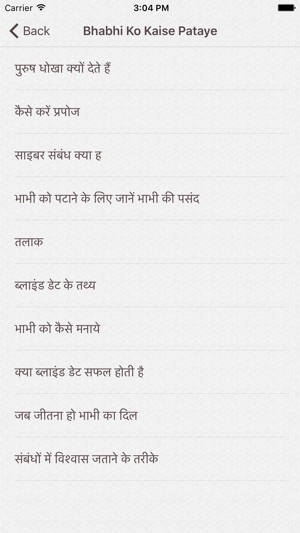 Carrier 3:04 PM
Back Bhabhi Ko Kaise Pataye
पुरुष धोखा क्यों देते हैं
कैसे करें प्रपोज
साइबर संबंध क्या ह
भाभी को पटाने के लिए जानें भाभी की पसंद
तलाक
ब्लाइंड डेट के तथ्य
भाभी को कैसे मनाये
क्या ब्लाइंड डेट सफल होती है
जब जीतना हो भाभी का दिल
संबंधों में विश्वास जताने के तरीके